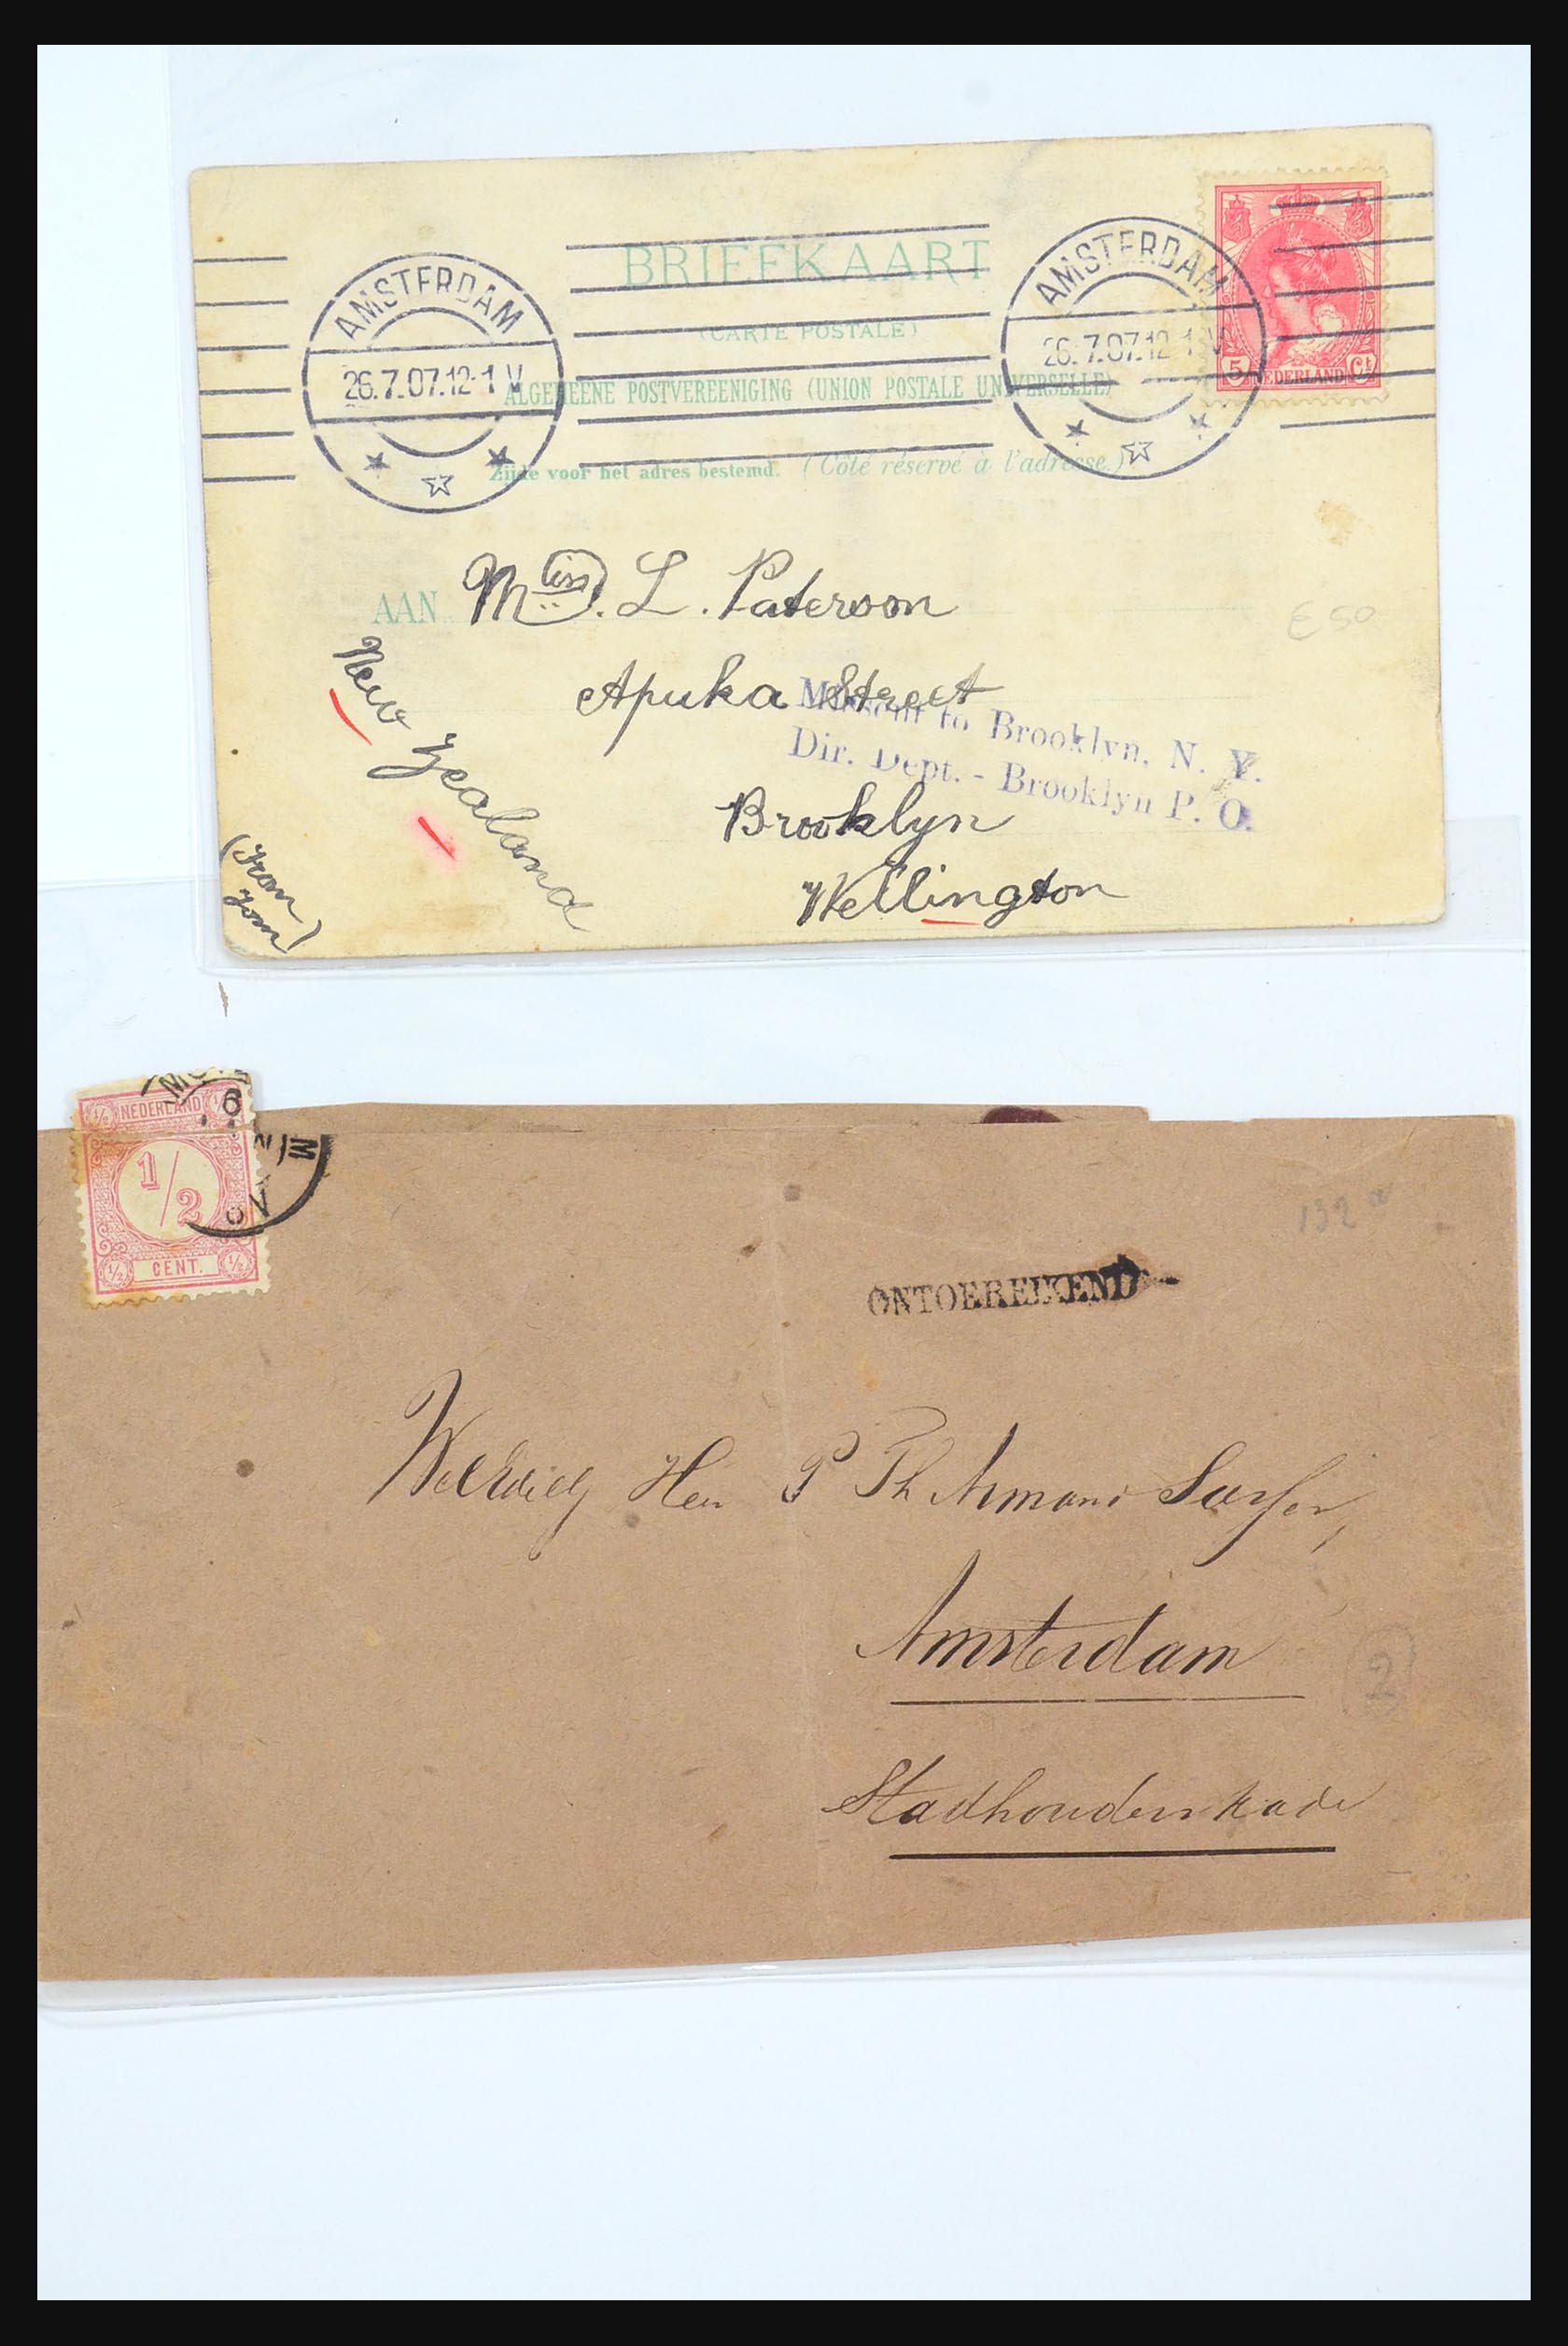 BRIEFKAART
(CARTE POSTALE)
ALGEMEENE POSTVEREENIGING (UNION POSTALE UNIVERSELLE)
Zijde voor het adres bestemd. (Côté réservé à l'adresse.)
AMSTERDAM
26.7.07.12-1 V
AMSTERDAM
26.7.07.12-1 V
5 NEDERLAND Ct
AAN Miss. L. Paterson
Apuka Street
Missent to Brooklyn, N. Y.
Dir. Dept. - Brooklyn P. O.
Brooklyn
Wellington
New Zealand
(From
Tom)
£50
½ NEDERLAND ½
1/2
½ CENT. ½
132 a
ONTOEREIKEND
Heer P Th Armand
Amsterdam
2
Stadhouderskade